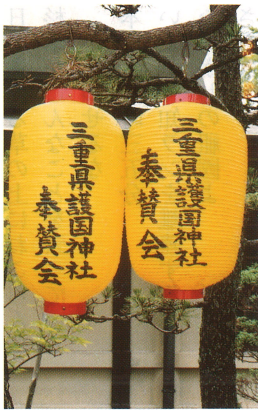 三重県護国神社
奉賛会
三重県護国神社
奉賛会